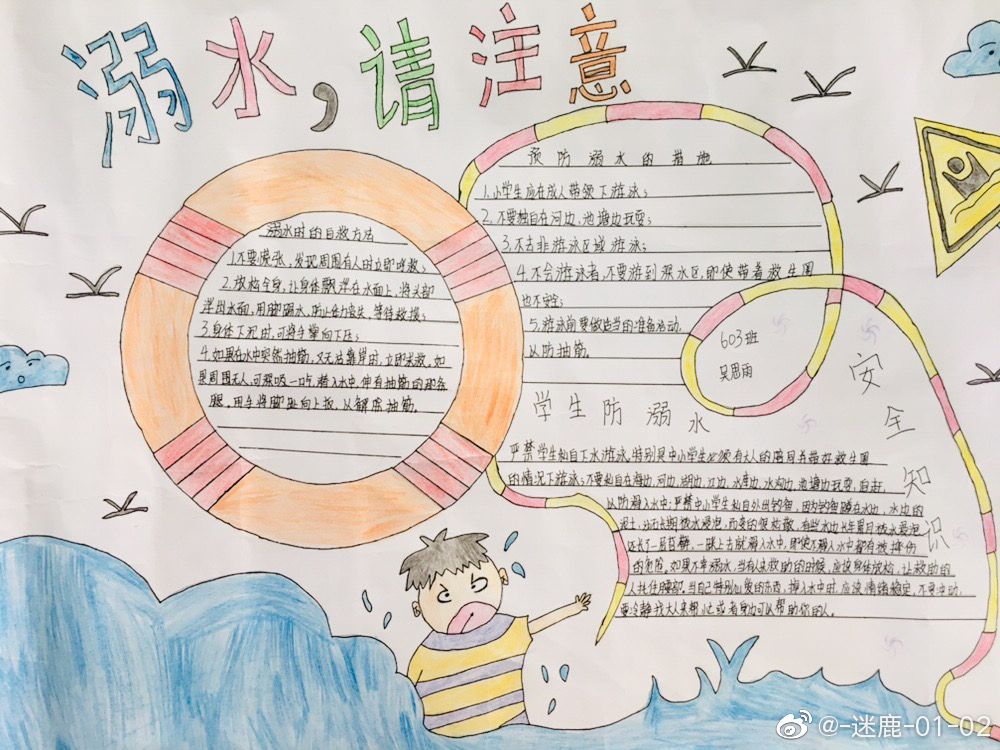 溺水,请注意
溺水时的自救方法
1.不要慌张,发现周围有人时立即呼救;
2.放松全身,让身体飘浮在水面上,将头部
浮出水面,用脚踢水,防止体力丧失,等待救援;
3.身体下沉时,可将手掌向下压;
4.如果在水中突然抽筋,又无法靠岸时,立即求救。如
果周围无人,可深吸一口气潜入水中,伸直抽筋的那条
腿,用手将脚趾向上扳,以解除抽筋。
预防溺水的措施
1.小学生应在成人带领下游泳;
2.不要独自在河边、池塘边玩耍;
3.不去非游泳区域游泳;
4.不会游泳者,不要游到深水区,即使带着救生圈
也不安全;
5.游泳前要做适当的准备活动,
以防抽筋。
603班
吴思雨
学生防溺水
安全知识
严禁学生私自下水游泳,特别是中小学生必须有大人的陪同并带好救生圈
的情况下游泳;不要私自在海边、河边、湖边、江边、水库边、水沟边、池塘边玩耍、追赶,
以防滑入水中;严禁中小学生私自外出钓鱼,因为钓鱼蹲在水边,水边的
泥土、沙石长期被水浸泡,而变的很松散,有些水边长年累月被水浸泡
还长了一层苔藓,一踩上去就滑入水中,即使不滑入水中都有被摔伤
的危险。如果不幸溺水,当有人来救助的时候,应该身体放松,让救助的
人托住腰部。当自己特别心爱的东西,掉入水中时,应该情绪稳定,不要冲动,
要冷静找大人来帮忙或者身边可以帮助你的人。
@-迷鹿-01-02